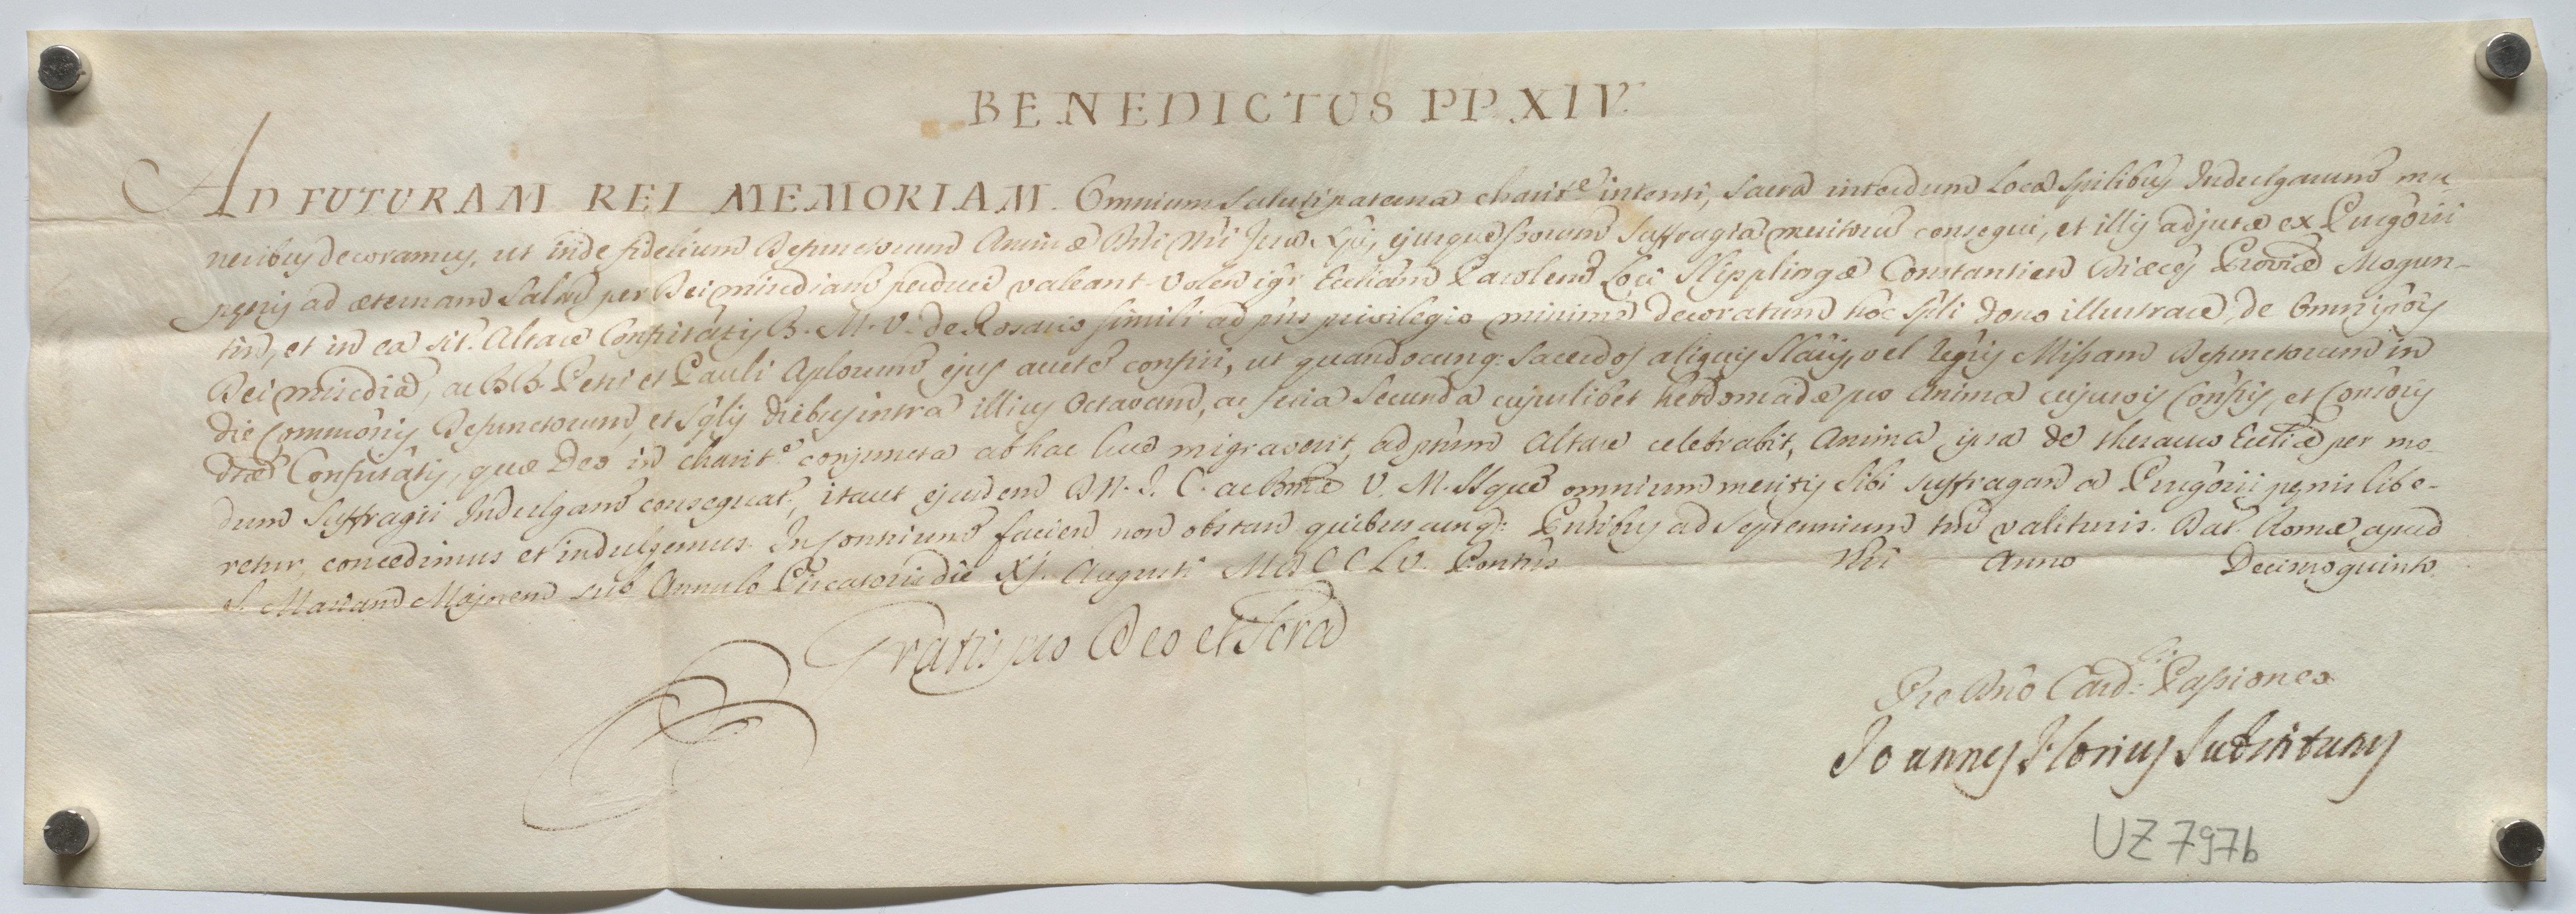 BENEDICTUS PP. XIV.
AD FUTURAM REI MEMORIAM. Omnium saluti paterna charit.e intenti, sacra interdum Loca spilibus Indulgarum mu
neribus decoramus, ut inde fidelium Defunctorum Animæ Dni Nri Jesu Xpi, ejusque Storum suffragia meritorum consequi, et illis adjutæ ex Purgorii
penis ad æternam salutem per Dei mirediam perduci valeant. Volen igr Eccliam Parolem Loci Klipplingæ Constantien Diæces Provciæ Mogun-
tin, et in ea sit. Altare Confritatis B. M. V. de Rosario simili ad pns privilegio minime decoratum hoc spli dono illustrare, de Omnipotis
Dei miredia, ac BB. Petri et Pauli Aplorum ejus aucte confisi, ut quandocunq: Sacerdos aliquis slaris, vel regris Missam Defunctorum in
die Commonis Defunctorum, et sglis diebus intra illius Octavam, ac feria secunda cujuslibet hebdomadæ pro Anima cujusvis Confris, et Consoris
dtæ Confritatis, quæ Deo in charit.e conjuncta ab hac luce migraverit, ad pnum Altare celebrabit, Anima ipsa de thesauro Eccliæ per mo-
dum suffragii Indulgam consequat., itaut ejusdem D. N. J. C. ac Bmæ V. M. Stque omnium meritis sibi suffragan a Purgorii penis libe-
retur, concedimus et indulgemus. In contrium facien non obstan quibuscunq: Pntibus ad Septennium tm valituris. Dat. Romæ apud
S. Mariam Majorem sub Annulo Piscatoris die XI. Augusti MDCCLV. Pontus Nri Anno Decimoquinto.
Gratis pro Deo et Scra
Pro Dno Card.li Passioneo
Joannes Florius Substitutus
UZ 797b